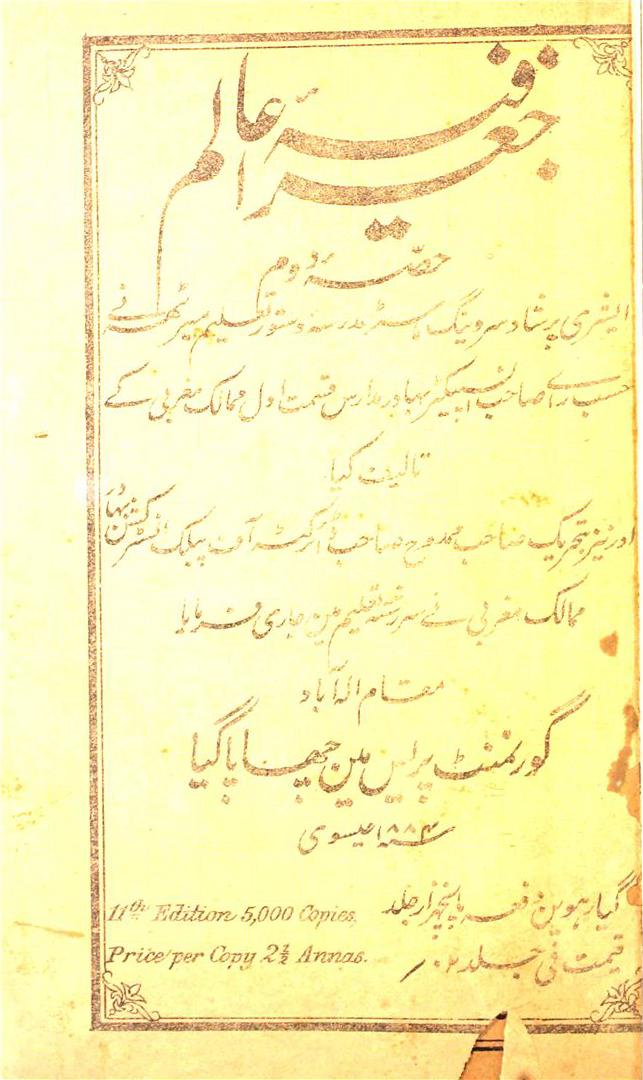 جغرافیہ عالم
حصہ دوم
ایشری پرشاد سروینگ ماسٹر مدرسہ دستور تعلیم میرٹھ نے
حسب راے صاحب انسپکٹر بہادر مدارس قسمت اول ممالک مغربی کے
تالیف کیا
اور نیز بتحریک صاحب ممدوح صاحب ڈائرکٹر آف پبلک انسٹرکشن بہادر
ممالک مغربی نے سررشتۂ تعلیم مین جاری فرمایا
مقام الہ آباد
گورنمنٹ پریس مین چھاپا گیا
سنہ ۱۸۸۴ عیسوی
گیارہوین دفعہ پانچہزار جلد
11th Edition 5,000 Copies.
قیمت فی جلد
Price per Copy 2½ Annas.